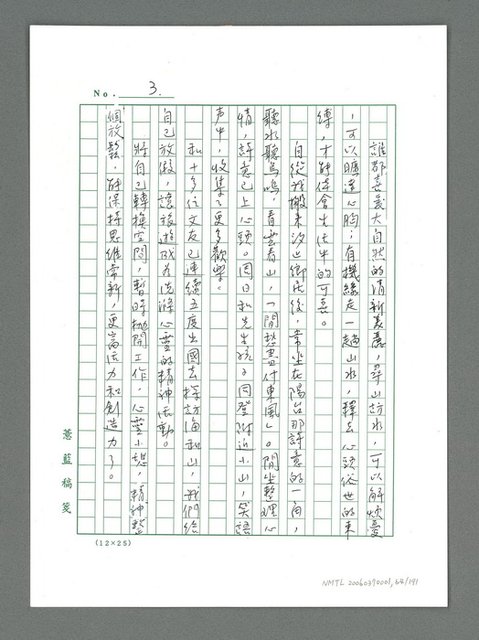 No. 3.
誰都喜愛大自然的清新美麗，尋山訪水，可以解煩憂
，可以曠達心胸；有機緣走一趟山水，釋去心頭俗世的束
縛，才能体會生活中的可喜。
自從我搬來汐止鄉居後，常坐在陽台那詩意的一角，
聽水聽鳥鳴，看雲看山，「閒愁盡付東風」。閒坐整理心
情，詩意已上心頭。同日和先生孩子同登附近小山，笑語
声中，收集了更多歡樂。
和十多位文友已連續五度出國去探訪海和山，我們給
自己放假，讓旅遊成為洗滌心靈的精神活動。
將自己轉換空間，暫時拋開工作，心靈小憩，精神整
個放鬆，能保持思維常新，更富活力和創造力了。
薏藍稿箋
(12×25)
NMTL 20060370001, 64/191